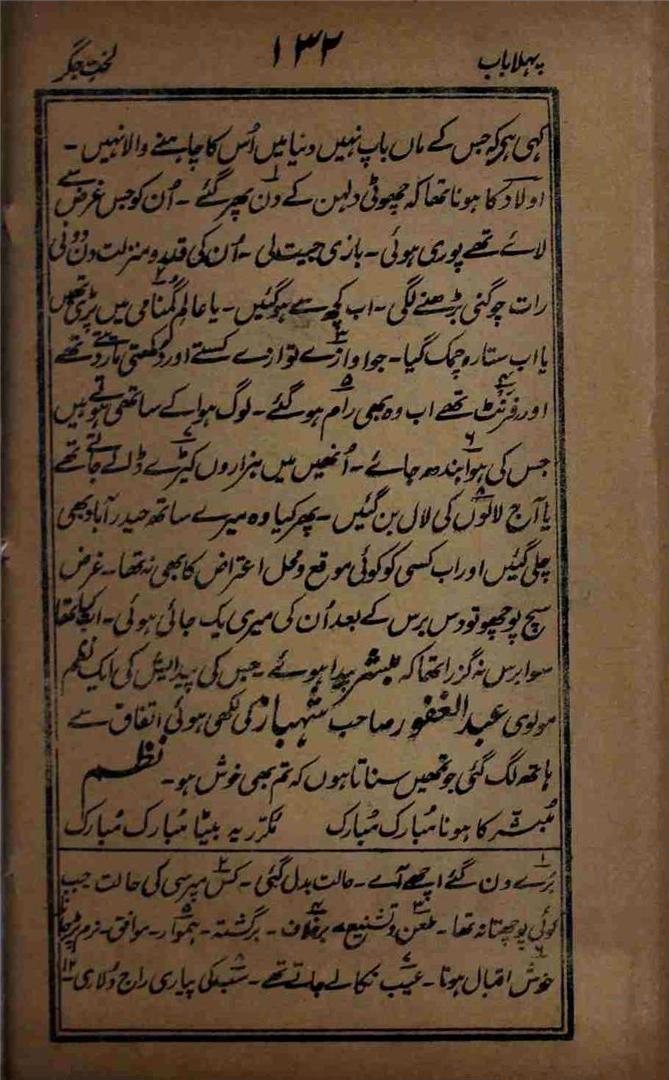 پہلا باب
۱۳۲
لختِ جگر
کہی ہے کہ جس کے ماں باپ نہیں دنیا میں اُس کا چاہنے والا نہیں۔
اولاد کا ہونا تھا کہ چھوٹی دلہن کے دن پھر گئے۔ اُن کو جس غرض سے
لائے تھے پوری ہوئی۔ بازی جیت لی۔ اُن کی قدر و منزلت دن دونی
رات چوگنی بڑھنے لگی۔ اب کچھ سے ہو گئیں۔ یا عالمِ گمنامی میں پڑی تھیں
یا اب ستارہ چمک گیا۔ جو آوازے توازے کستے اور دُکھتی مارتے تھے
اور فرنٹ تھے اب وہ بھی رام ہو گئے۔ لوگ ہوا کے ساتھی ہوتے ہیں
جس کی ہوا بندھ جائے۔ اُنھیں میں ہزاروں کیڑے ڈالے جاتے تھے
یا آج لالوں کی لال بن گئیں۔ پھر کیا وہ میرے ساتھ حیدرآباد بھی
چلی گئیں اور اب کسی کو کوئی موقع و محل اعتراض کا بھی نہ تھا۔ غرض
سچ پوچھو تو دس برس کے بعد اُن کی میری یک جائی ہوئی۔ اب کیا تھا
سوا برس نہ گزرا تھا کہ مبشر پیدا ہوئے۔ جس کی پیدایش کی ایک نظم
مولوی عبد الغفور صاحب شہباز کی لکھی ہوئی اتفاق سے
ہاتھ لگ گئی جو تمھیں سناتا ہوں کہ تم بھی خوش ہو۔ نظم
مُبشر کا ہونا مُبارک مُبارک مکرّر یہ بیٹا مُبارک مُبارک
۱ بُرے دن گئے اچھے آئے۔ حالت بدل گئی۔ ۲ کس مپرسی کی حالت جب
کوئی پوچھتا نہ تھا۔ ۳ طعن و تشنیع۔ ۴ برخلاف۔ برگشتہ۔ ۵ ہموار۔ موافق۔ نرم پڑ جانا
۶ خوش اقبال ہونا۔ ۷ عیب نکالے جاتے تھے۔ ۸ سب کی پیاری راج دُلاری۔ ۱۲